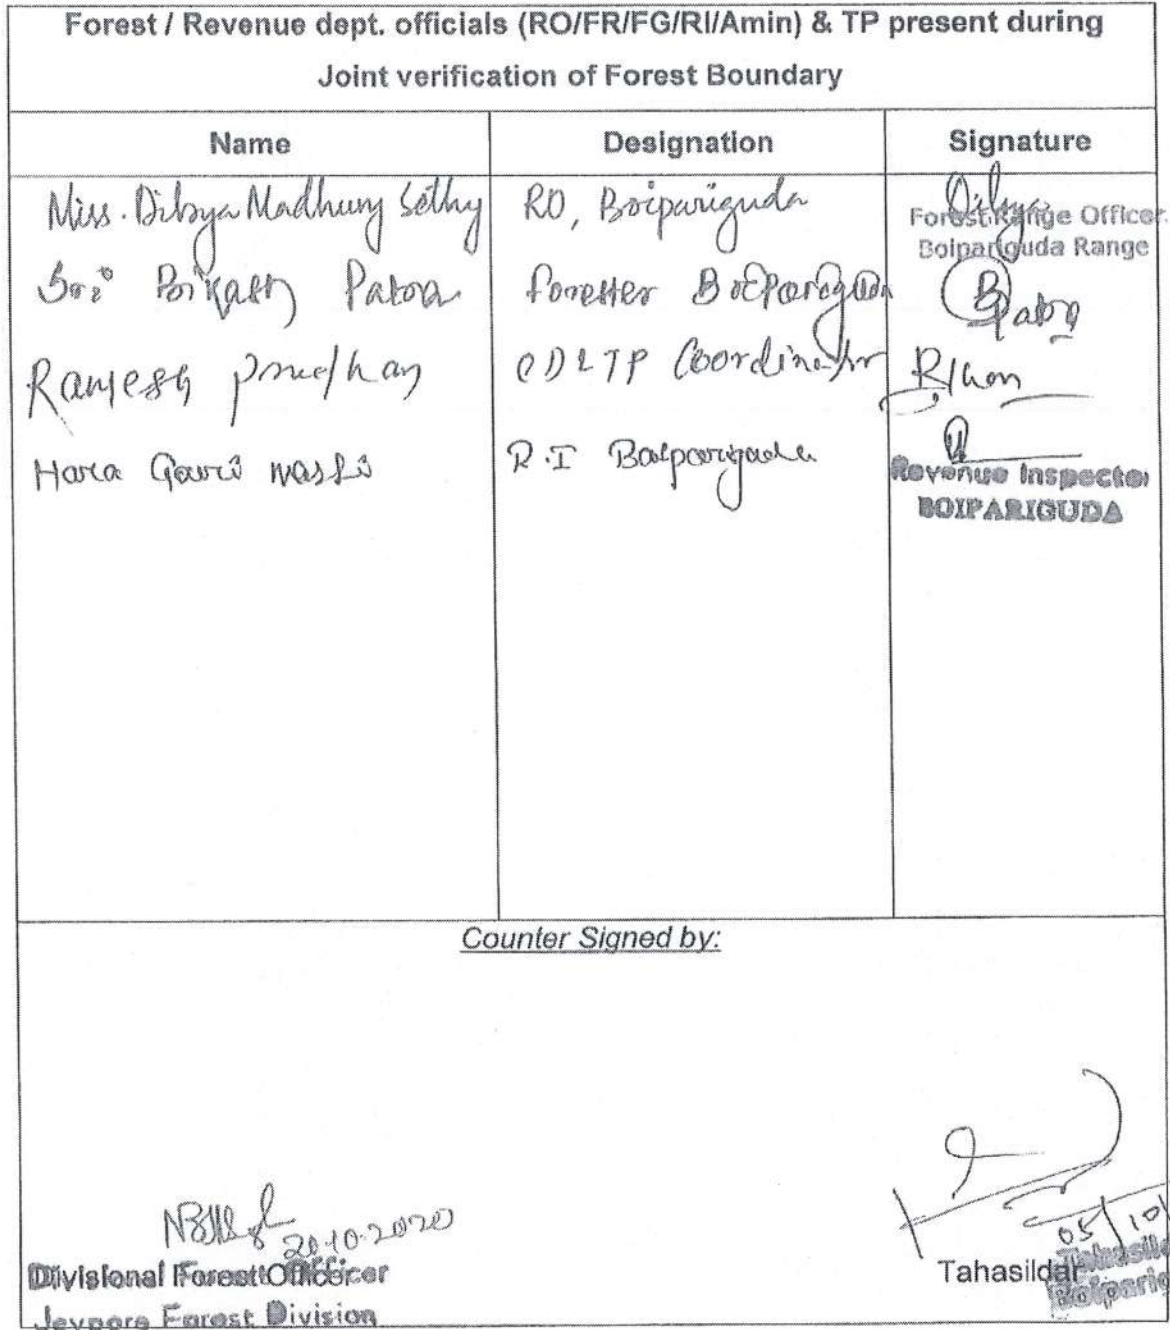 Forest / Revenue dept. officials (RO/FR/FG/RI/Amin) & TP present during
Joint verification of Forest Boundary
Name Designation Signature
Miss. Dibya Madhury Sethy RO, Boipariguda Dibya
Forest Range Officer
Boipariguda Range
Sri Bikash Patra Forester Boipariguda BPatra
Ramesh Pradhan Coordinator
Hara Gauri R.I Boipariguda
Revenue Inspector
BOIPARIGUDA
Counter Signed by:
20.10.2020
05/10/
Divisional Forest Officer Tahasildar
Jeypore Forest Division